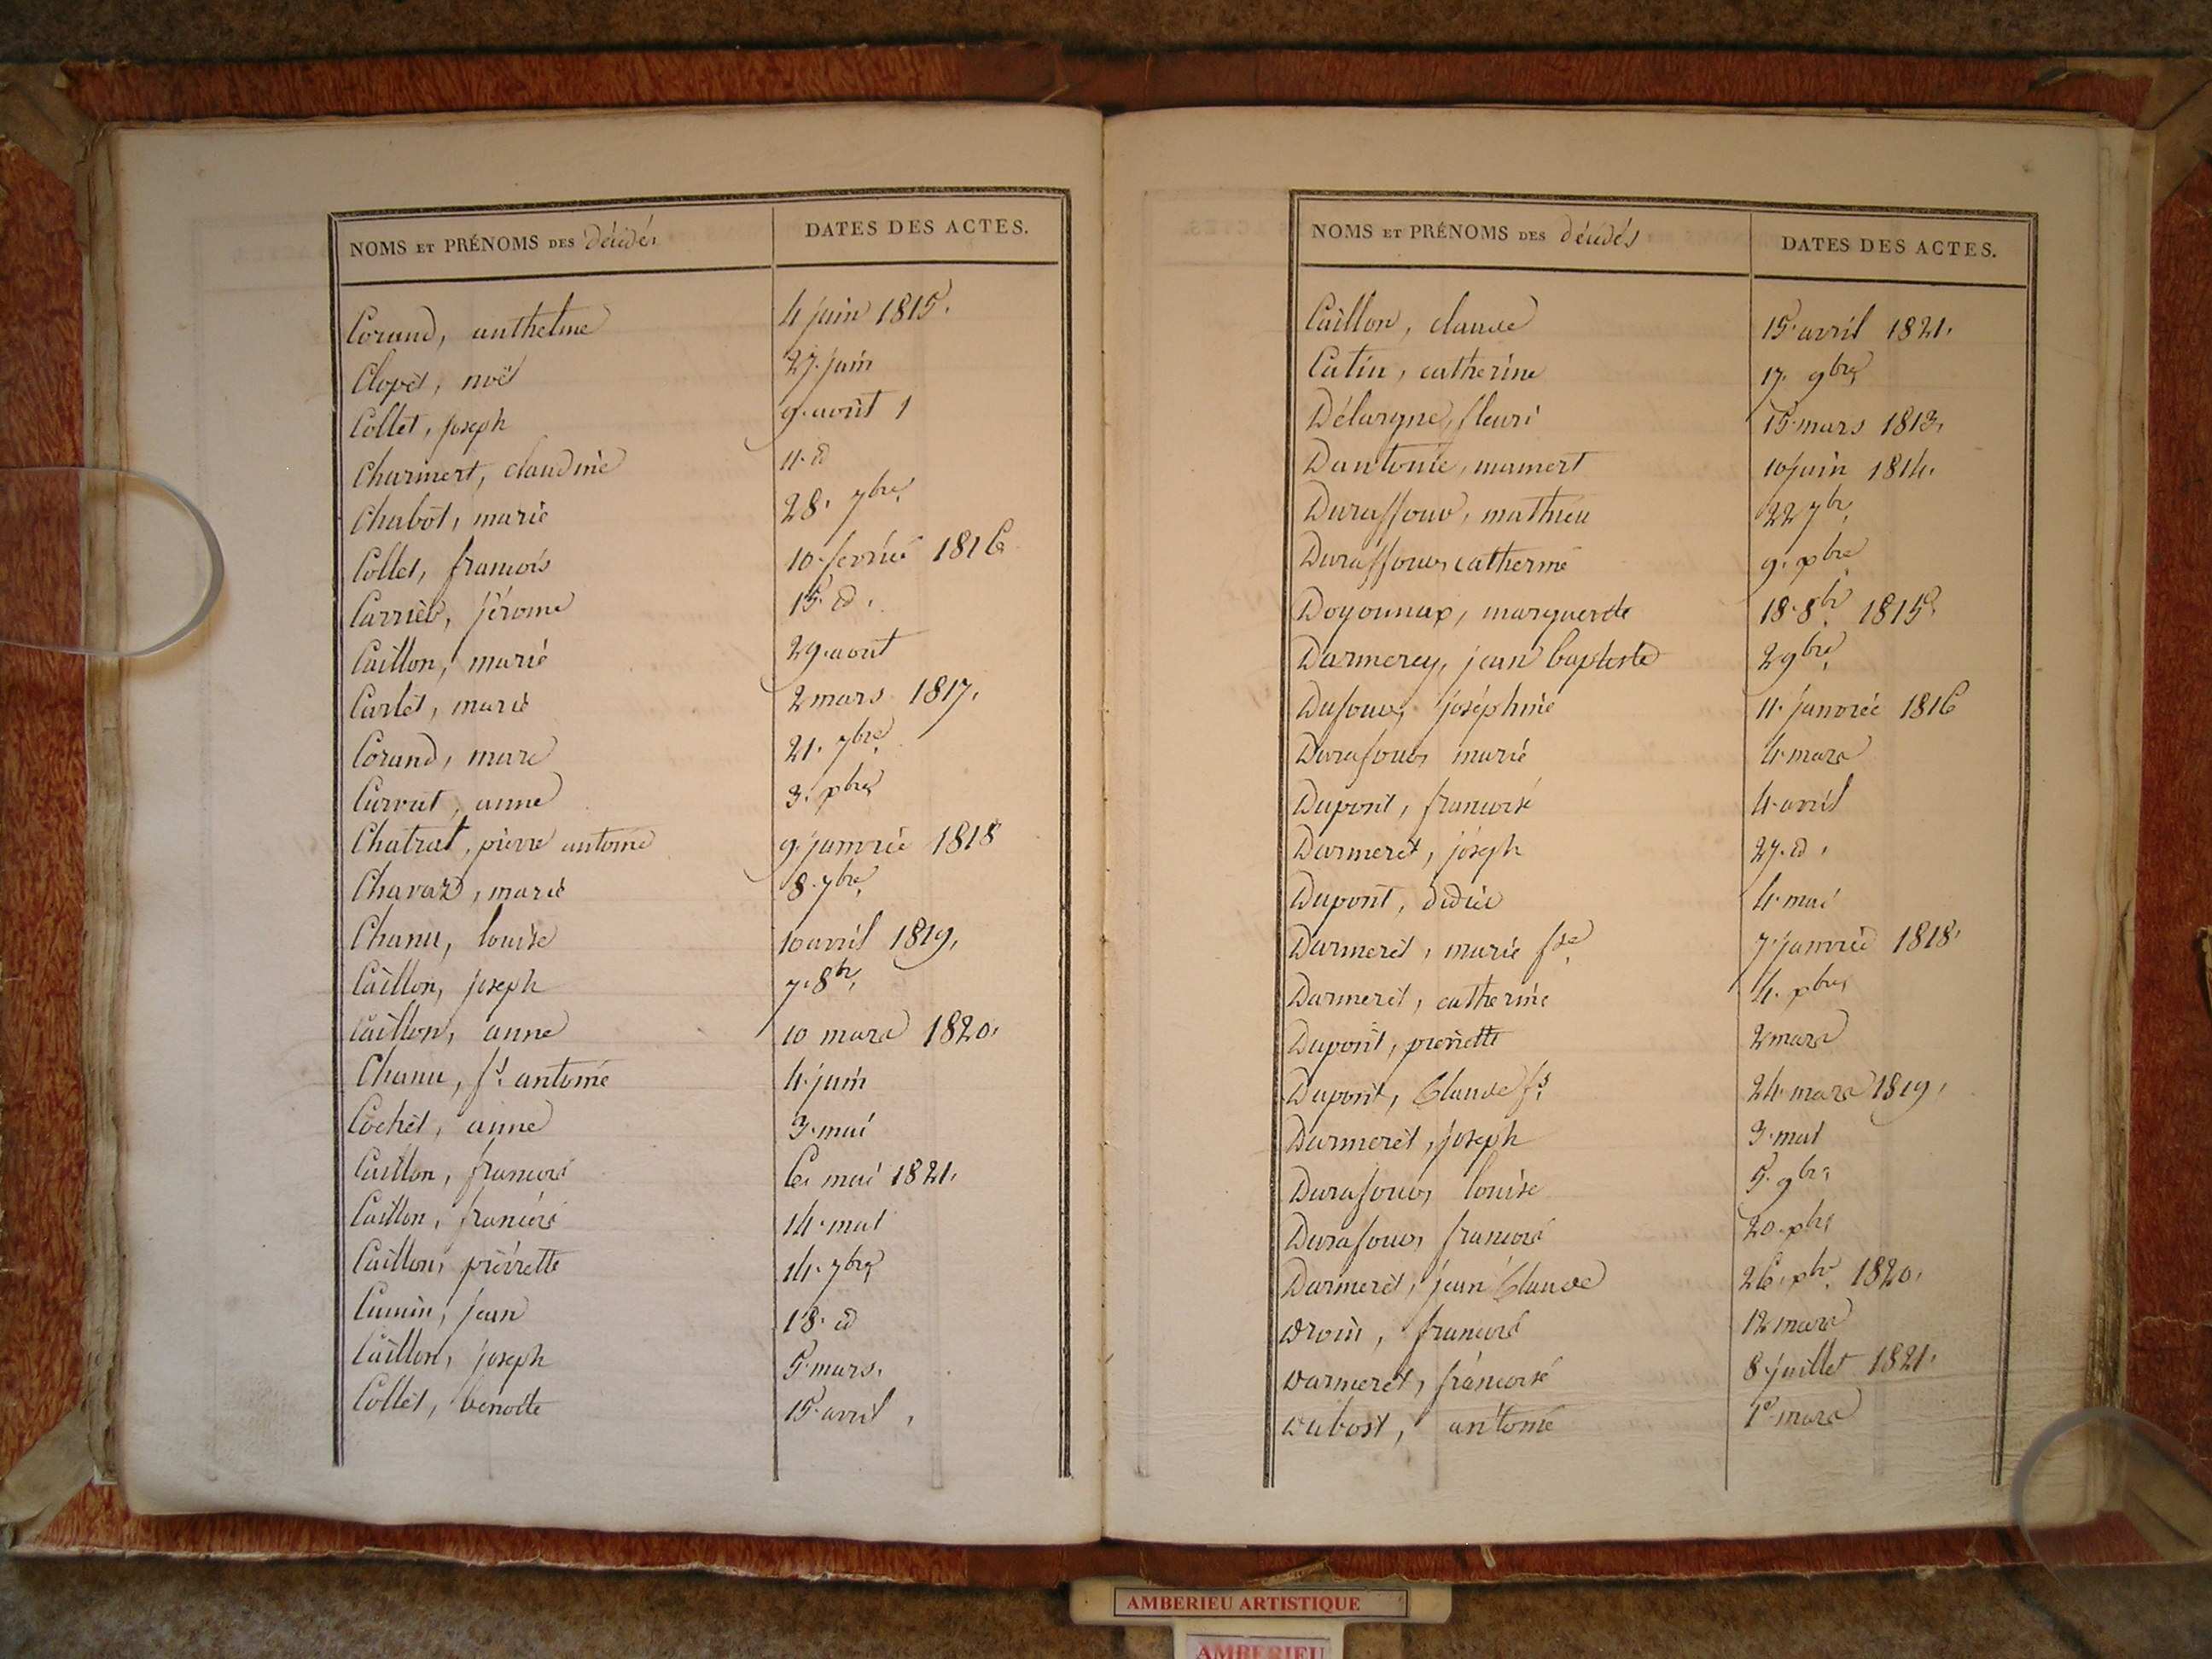 NOMS ET PRÉNOMS DES Décédés DATES DES ACTES.
Corand, anthelme 4 juin 1815.
Clopet, noël 27. juin
Collet, joseph 9. août
Charmert, claudine 11. d
Chabot, marie 28. 7bre.
Collet, francois 10. fevrier 1816
Carrier, jérome 15. d.
Caillon, marie 29. aout
Carlet, marie 2 mars 1817.
Corand, marc 21. 7bre.
Currat, anne 3. xbre
Chatrat, pierre antoine 9. janvier 1818
Chavaz, marie 8. 7bre.
Chanu, louise 10 avril 1819.
Caillon, joseph 7. 8br.
Caillon, anne 10 mars 1820.
Chanu, fs. antoine 4. juin
Cochet, anne 3. mai
Caillon, francois 6. mai 1821.
Caillon, francois 14. mai
Caillon, pierrette 14. 7bre
Cumin, jean 18. d
Caillon, joseph 5. mars.
Collet, benoite 15. avril
NOMS ET PRÉNOMS DES décédés DATES DES ACTES.
Caillon, claude 15. avril 1821.
Catin, catherine 17. 9bre
Délargne, fleuri 15. mars 1813.
Dantonie, mamert 10 juin 1814.
Duraffour, mathieu 22 7br.
Duraffour, catherine 9. xbre.
Doyonnax, marguerite 18. 8br. 1815.
Darmerey, jean baptiste 2 9bre.
Dufour, joséphine 11. janvier 1816
Durafour, marie 4. mars
Dupont, francoise 4. avril
Darmeret, joseph 27. d.
Dupont, didier 4. mai
Darmeret, marie fse. 7. janvier 1818.
Darmeret, catherine 4. xbre
Dupont, pierrette 2 mars
Dupont, Claude fs. 24. mars 1819.
Darmeret, joseph 3. mai
Durafour, louise 5. 9bre
Durafour, francois 20. xbre
Darmeret, jean Claude 26. xbr. 1820.
Droin, francois 12 mars
Darmeret, francoise 8. juillet 1821.
Dubost, antoine 1er mars
AMBERIEU ARTISTIQUE
AMBERIEU